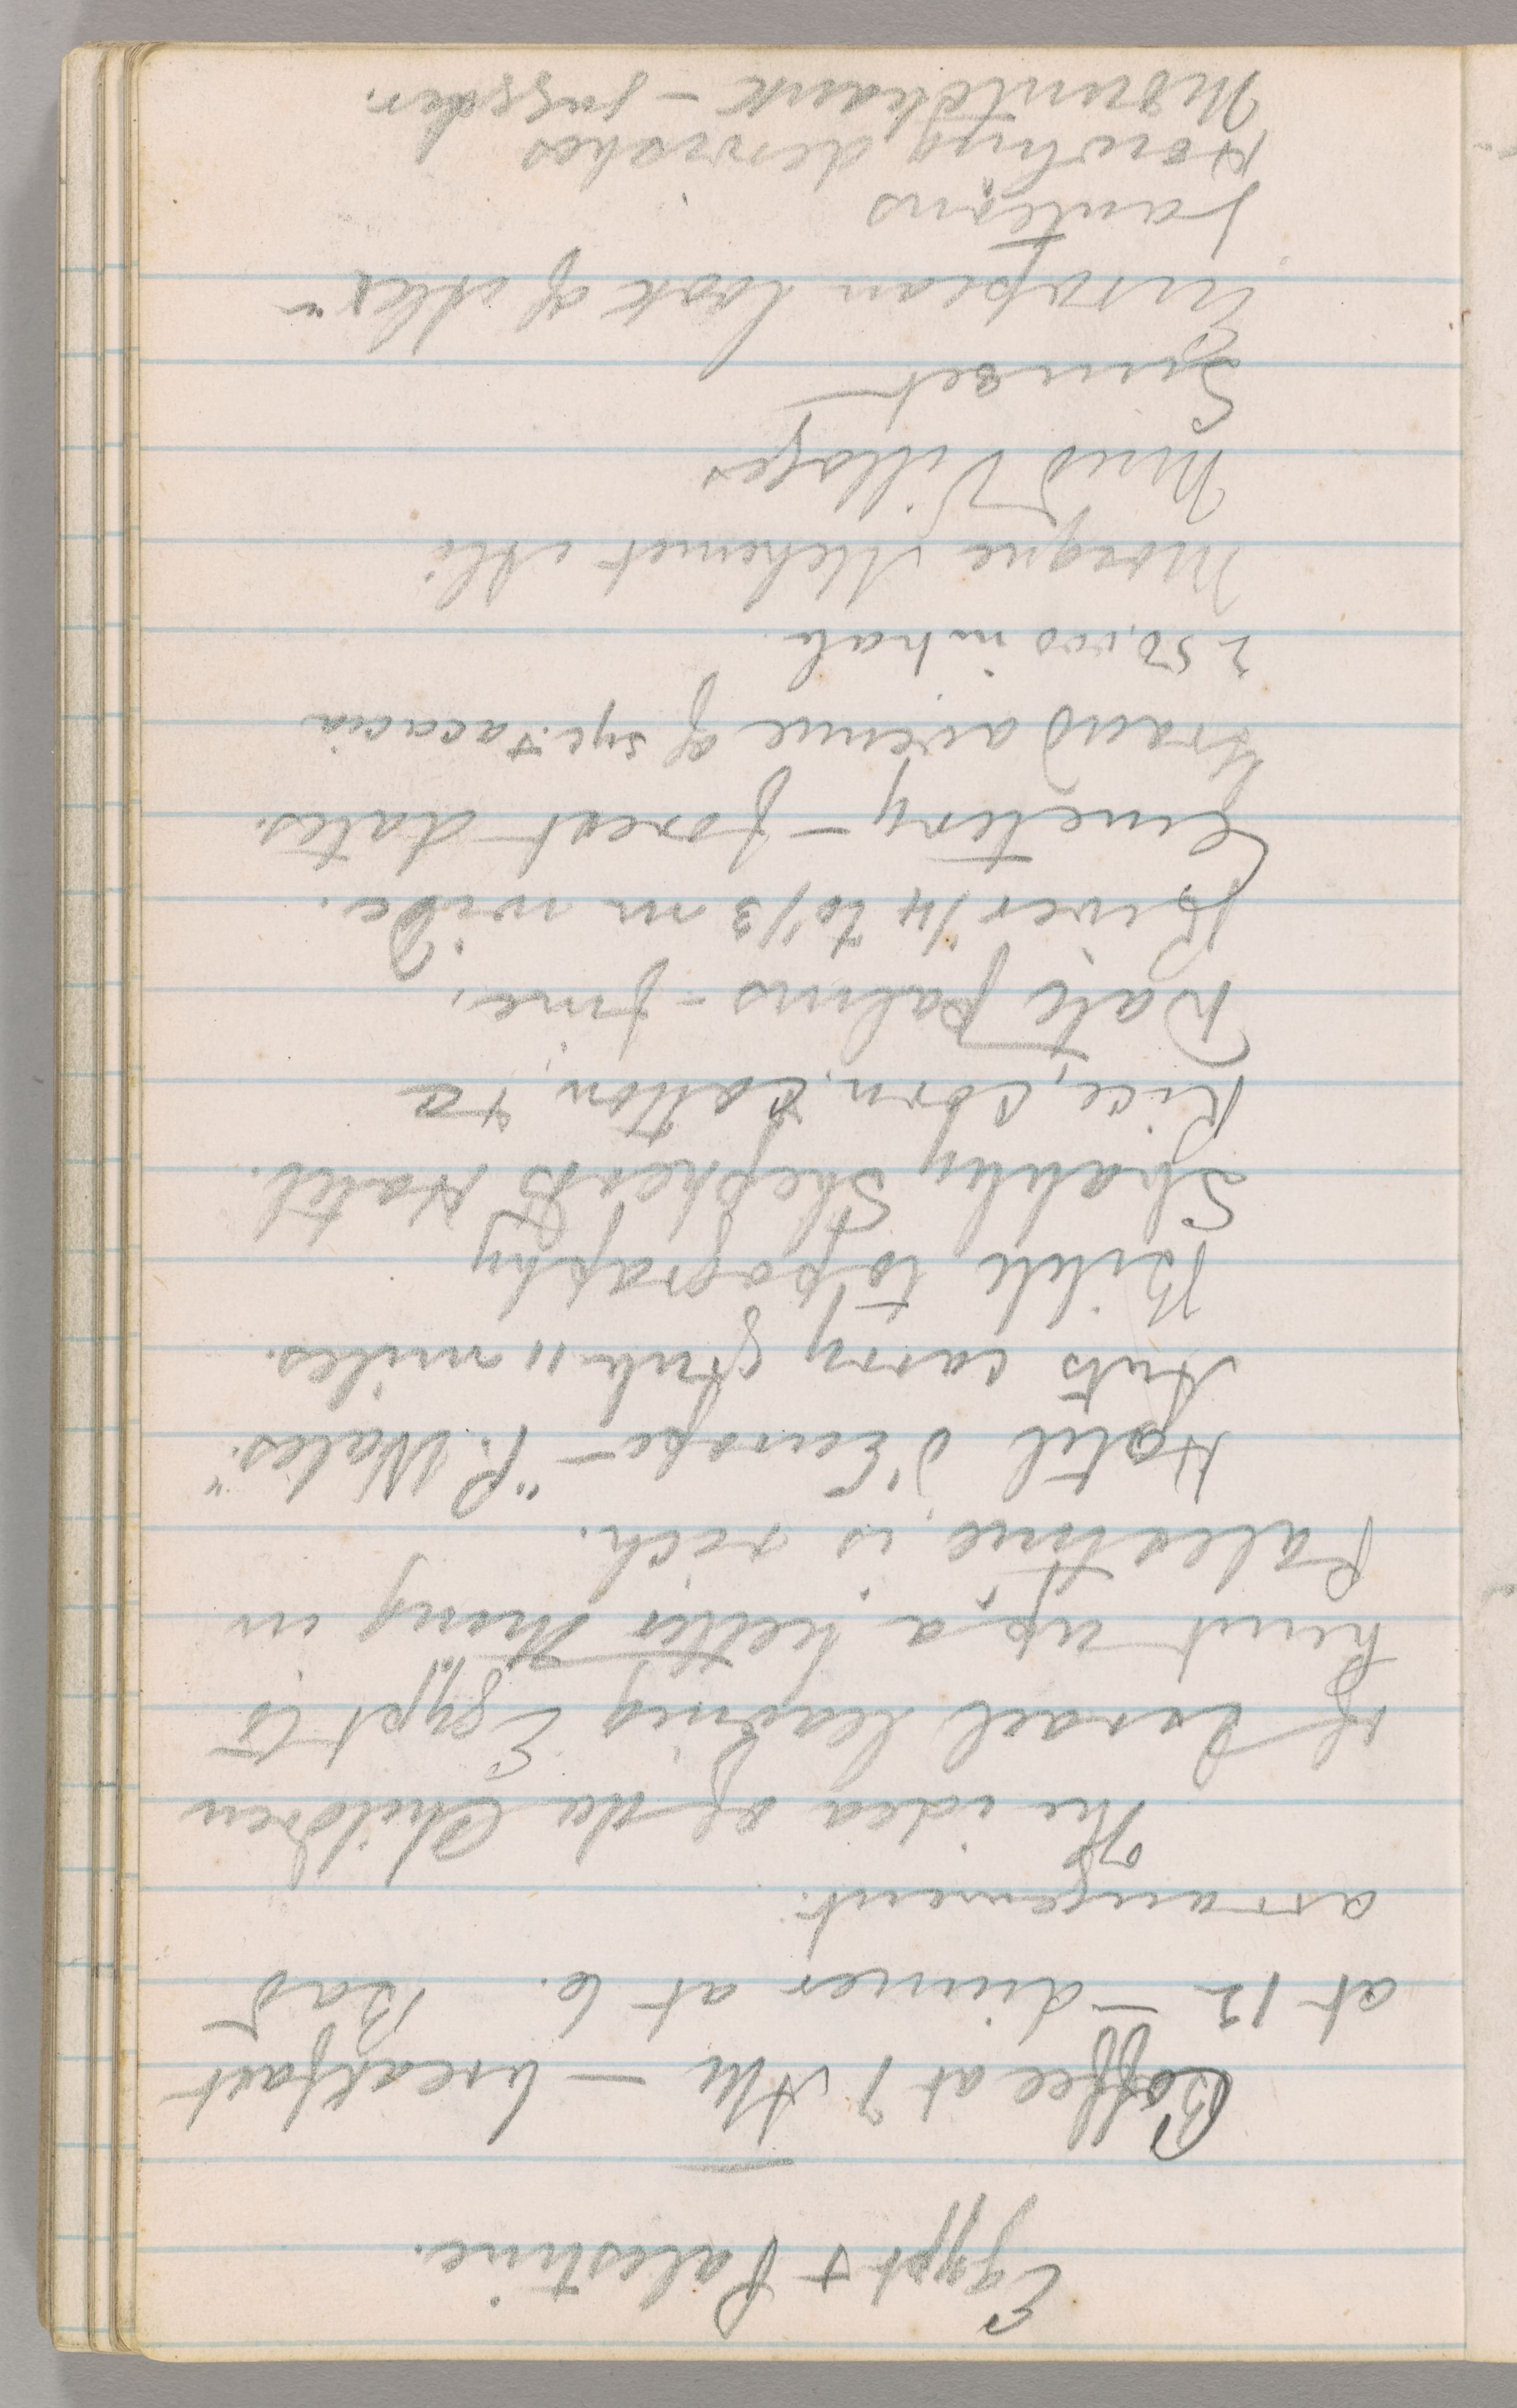 Egypt & Palestine.
Coffee at 7 AM — breakfast
at 12 — dinner at 6. Bad
arrangement.
The idea of the Children
of Israel leaving Egypt to
hunt up a better thing in
Palestine, is rich.
Hotel d'Europe — "P. Wales."
Ants carry grub 11 miles.
Bible topography
Shabby Shepherds Hotel.
Rice, corn, cotton, &c
Date palms — fine.
River 1/4 to 1/3 m wide.
Cemetery — forest dates.
Grand avenue of syc. & acacia
250,000 inhab
Mosque Mehemet Ali
Mud Villages
Sunset —
European look of Alex —
Lanterns
Howling dervishes
Mountebank — juggler.